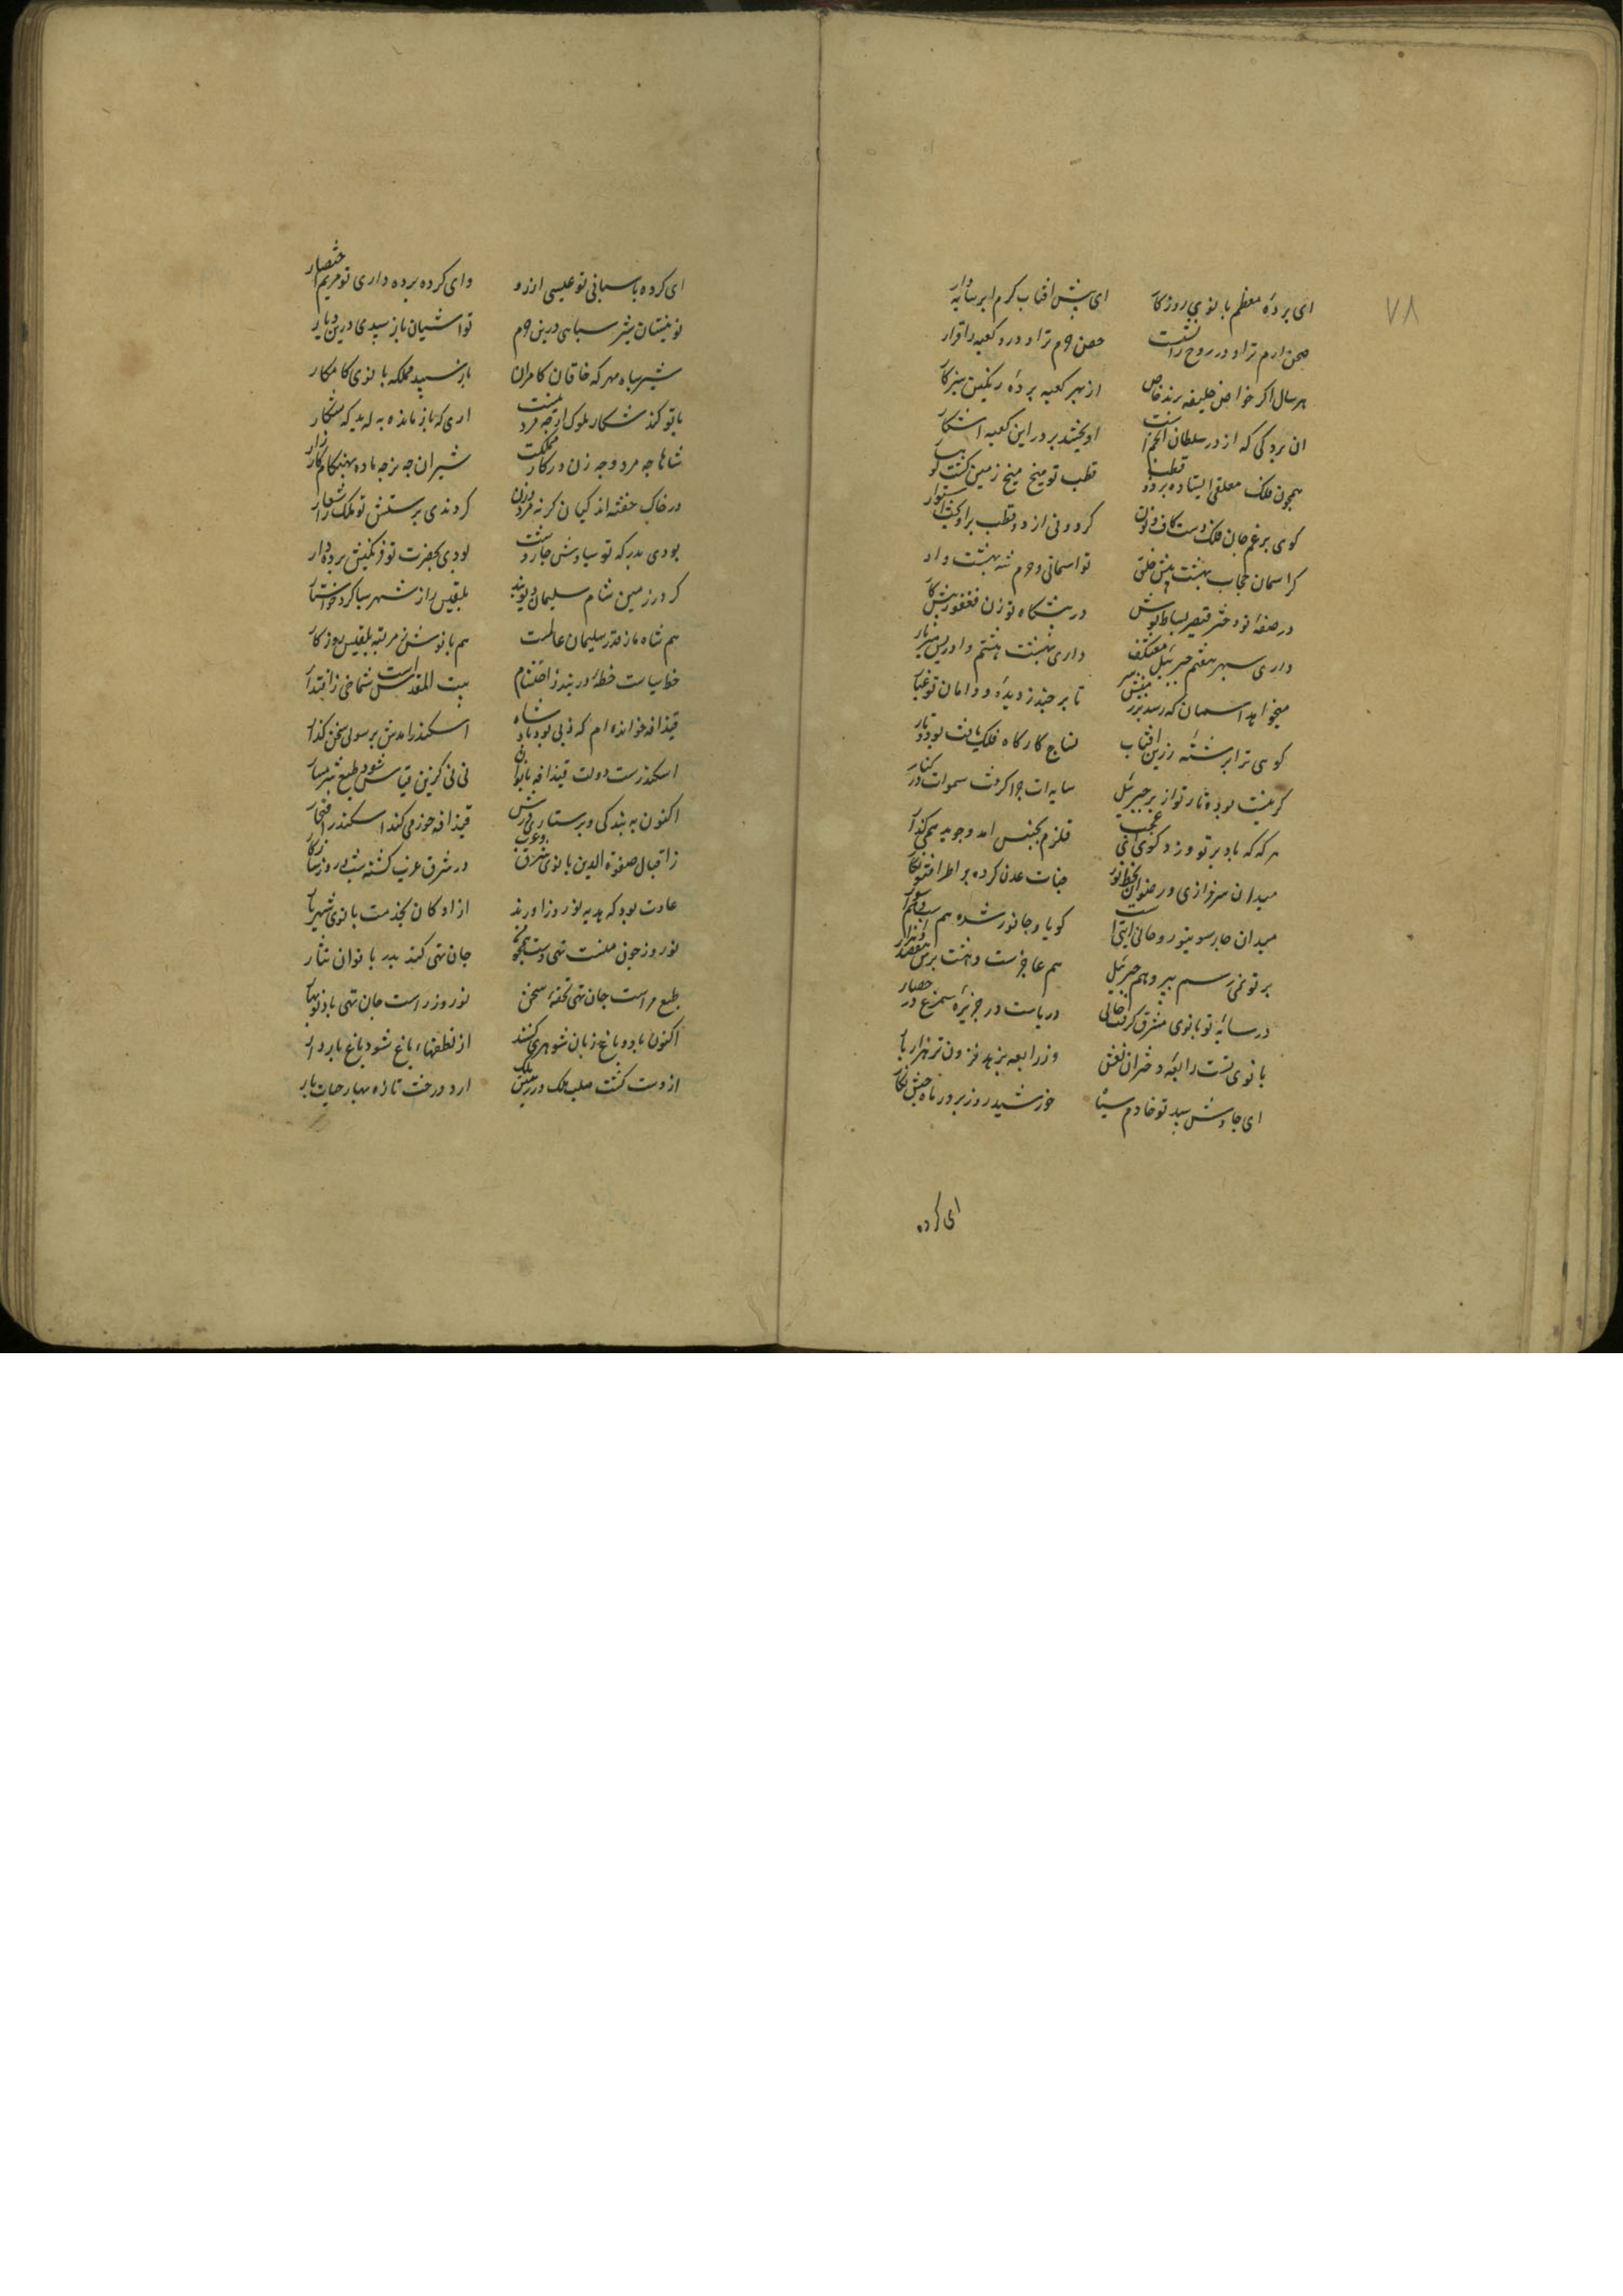 ۷۸
ای پردهٔ معظم بانوی روزکار ای پیش افتاب کرم ابر سایه دار
صحن ارم ترا و در روح را نشست حصن حرم ترا و درو کعبه را قرار
هر سال اکر خواص خلیفه برند خاص از بهر کعبه پردهٔ رنکین بنزکار
ان پردکی که از در سلطان انجم است اویختند بر در این کعبه اشکار
همچون فلک معلقی استاده بر دو قطب قطب تو میخ میخ زمین کشت
کوی برغم جان فلک دست کاف و نون کردونی از دو قطب براویخت استوار
کر اسمان حجاب بهشت پیش خلق تو اسمانی و حرم شه بهشت وار
در صفهٔ تو دختر قیصر بساط بوش در پیشکاه تو زن فغفور پیشکار
داری سپهر هفتم جبرئیل معتکف داری بهشت هشتم و ادریس میزبار
میخواهد اسمان که رسد بر سر تا بر چند ز دیده و دامان تو غبار
کوی ترا برشتهٔ زرین افتاب نساج کارکاه فلک بافت بود و تار
کر نیست بوده تار تو از پر جبرئیل سایه ات چرا کرفت سموات در کنار
هر که که باد بر تو وزد کوی ای عجب قلزم بجنبش امد و جودیه هم کنار
میدان سرفرازی و رضوان بخط نور جنات عدن کرده بر اطراف تو نکار
میدان چارسو بتو روحانی ایتست کویا و جانور شده هم
بر تو نمی رسم بپر وهم جبرئیل هم عاجزست
در سایهٔ تو بانوی مشرق کرفت جای دریاست در جزیره سیمرغ در حصار
بانوی تست رابعهٔ دختران نعش وز رابعه بزهد فزون تر هزار بار
ای چاوش سپید تو خادم سیاه خورشید روز پرور و ماه حبش نکار
ای کرده
ای کرده پاسبانی تو عیسی ارزو وای کرده پرده داری تو مریم اختصار
تو نیستان شیر سیاهی درین حرم تو اشیان باز سپیدی درین دیار
شیر سیاه مهرکه خاقان کامران باز سپید مملکه بانوی کامکار
با تو کند شکار ملوک ارچه مرد نیست اری که باز ماده به اید که شکار
شاها چه مرد و چه زن در کار مملکت شیران چه نر چه ماده بهنکام کارزار
در خاک خفته اند کیان کر نه مرد و زن کردندی پرستش تو ملک را شعار
بودی بدرکه تو سیاوش جار دشت بودی بحضرت تو فرنکیس پرده دار
کر در زمین شام سلیمان دیوبند بلقیس را ز شهر سبا کرد خواستار
هم شاه ما ز قدر سلیمان عالمست هم بانوش بمرتبه بلقیس روزکار
خط سباست خطهٔ دربند ز احتشام بیت المقدس است شماخی ز اقتدار
قیذافه خوانده ام که زنی بود پادشاه اسکندر امدش برسولی سخن گذار
اسکندرست دولت قیذافه بانوان نی نی کزین قیاس شود طبع شرمسار
اکنون به بندکی و پرستاری درش قیذافه خوز می کند اسکندر افتخار
ز اقبال صفوة الدین بانوی شرق و غرب در شرق غرب کشته شب و روز سازکار
عادت بود که هدیه نوروز اورند ازادکان بخدمت بانوی شهریار
نوروز چون منست تهی دست جان تهی کند بدر بانوان نثار
طبع مراست جان تهی تحفهٔ سخن نوروز راست جان تهی باد نوبهار
اکنون باد و باغ زبان شوهری کنند از نطفهاء باغ شود باغ باردار
از دست کشت صلب ملک در زمین ملک ارد درخت تازه بهار حیات بار